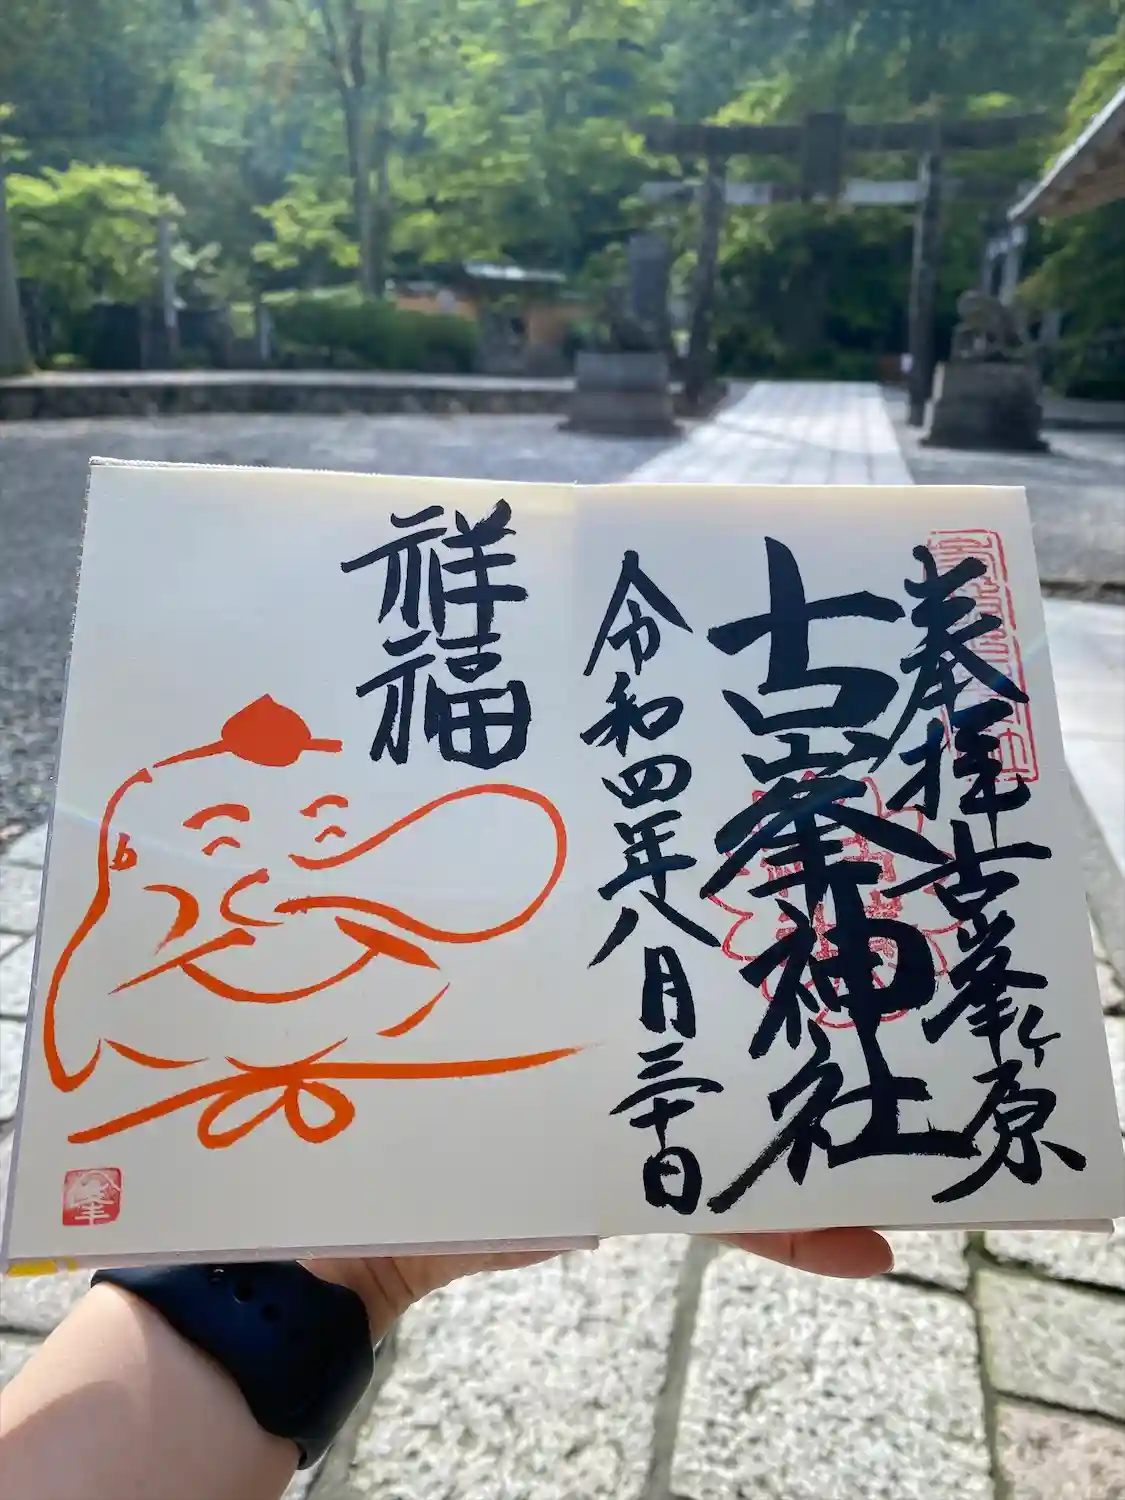 奉拝古峯ヶ原
古峯神社
令和四年八月三十日
祥福
峯